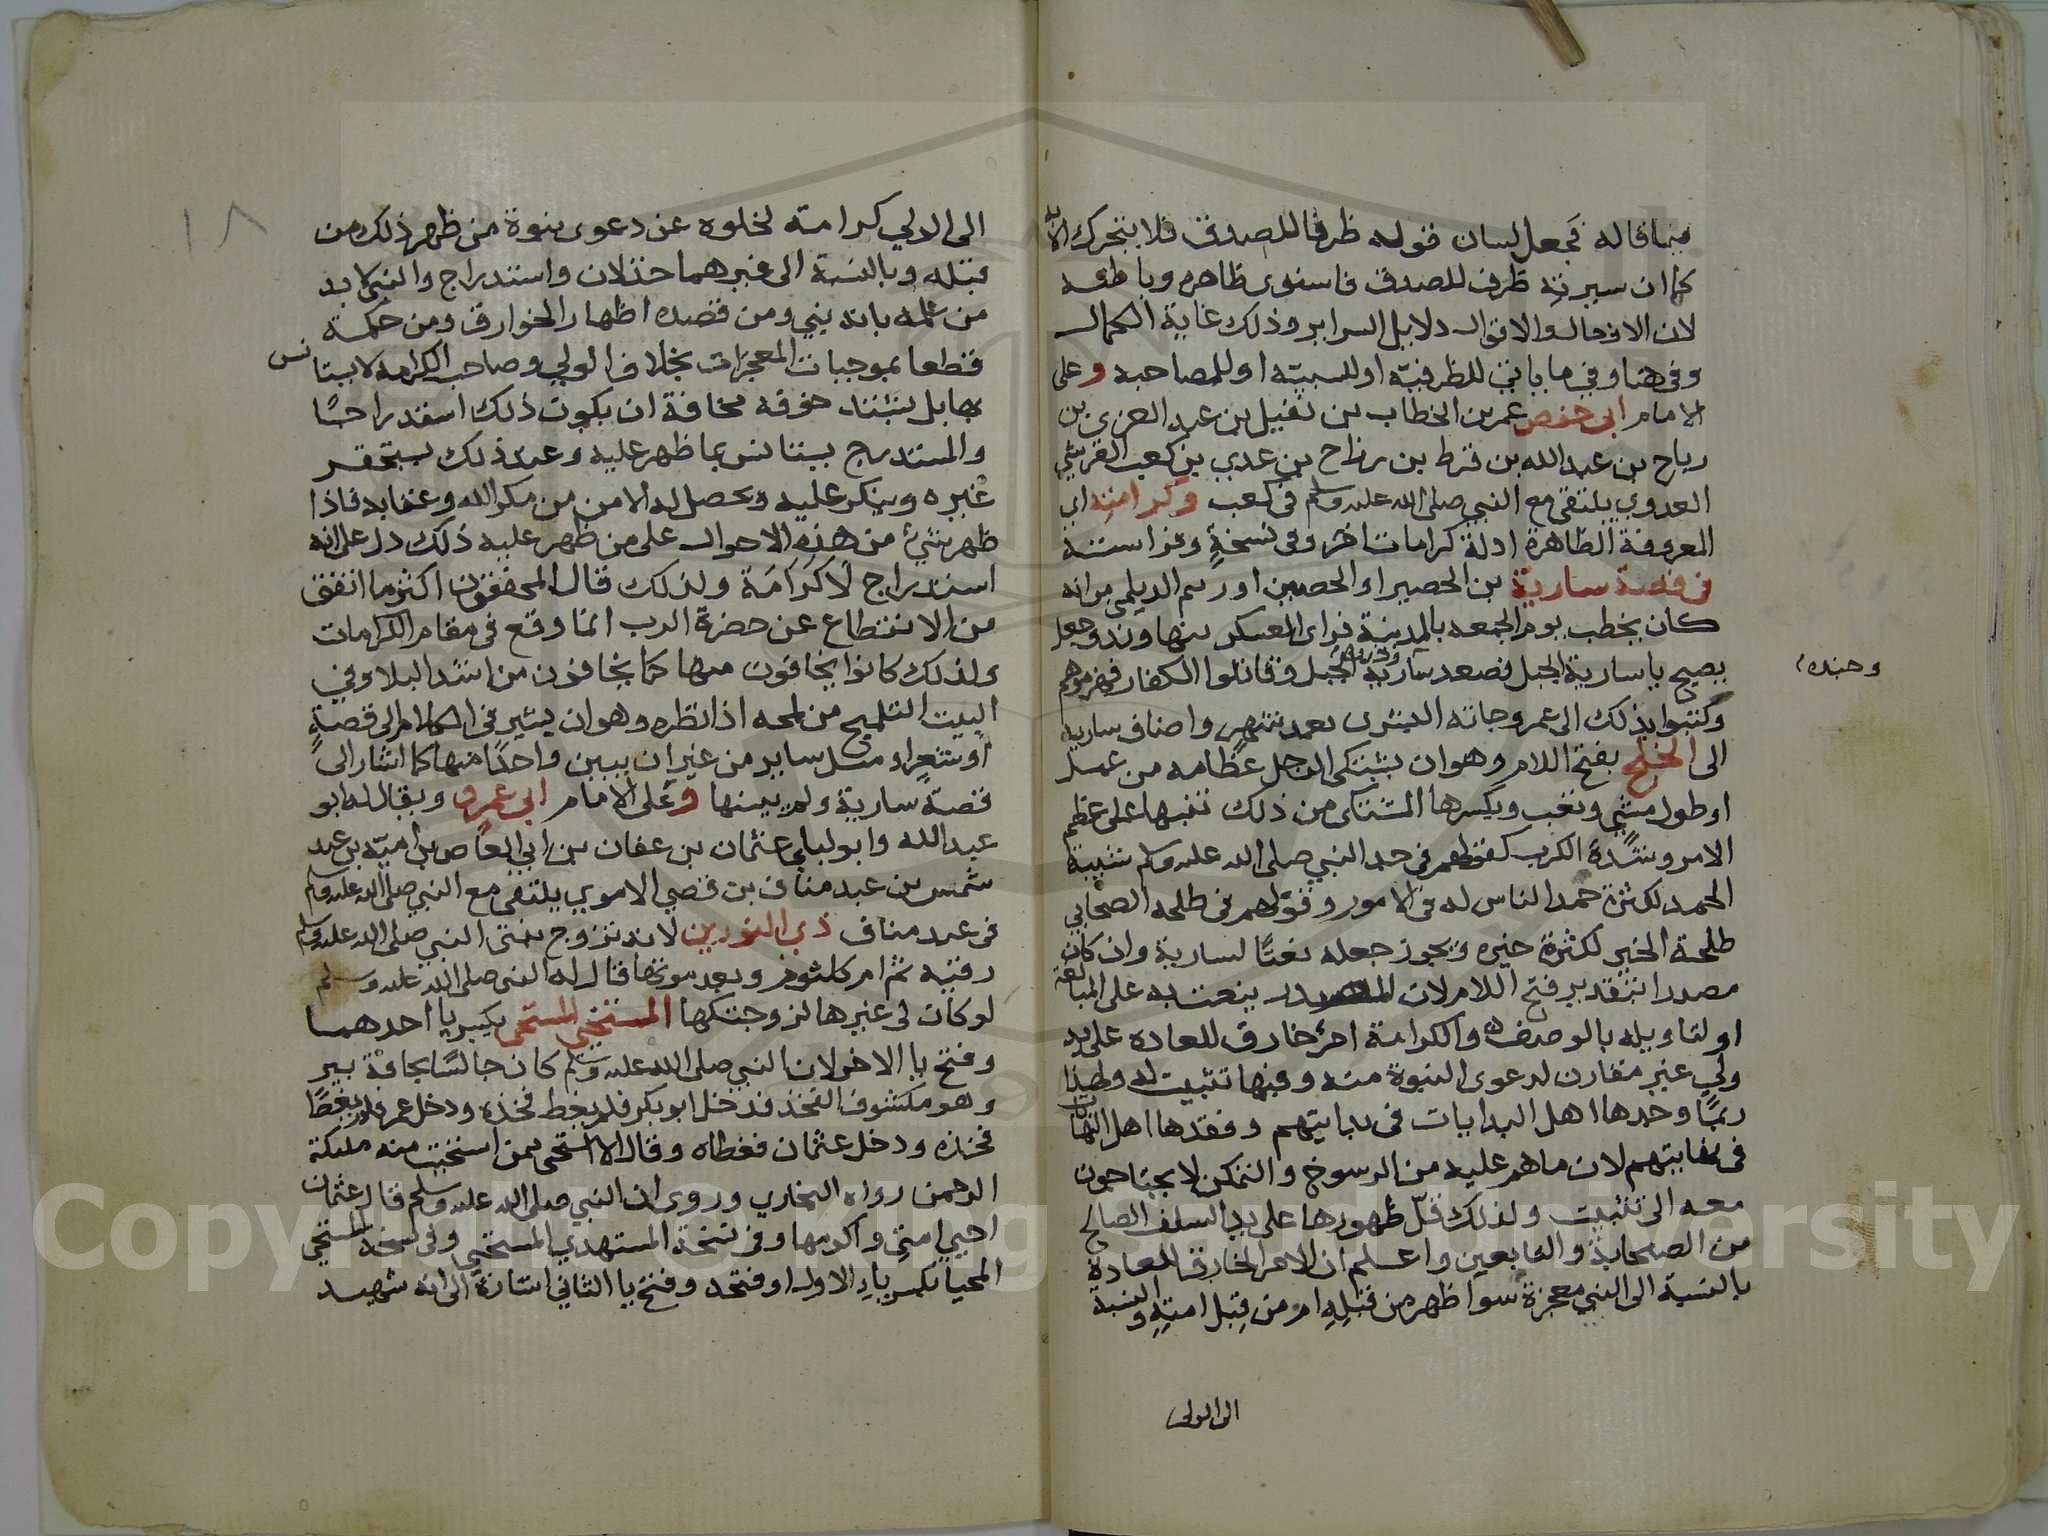 فيما قاله فجعل لسان قوله ظرفا للصدق فلا يتحرك الا به
كما ان سيرته ظرف للصدق فاستوى ظاهره وباطنه
لان الافعال والاقوال دلايل السراير وذلك غاية الكمال
وفي هنا وفي ما ياتي للظرفية او للسببية او للمصاحبة وعلى
الامام ابي حفص عمر بن الخطاب بن نفيل بن عبد العزى بن
رياح بن عبد الله بن قرط بن رزاح بن عدي بن كعب القرشي
العدوي يلتقي مع النبي صلى الله عليه وسلم في كعب وكرامته اي
المعروفة الظاهرة ادلة كرامات اخر وفي نسخة
في قصة سارية بن الحصير او الحصين او رسم الديلمي من انه
كان يخطب يوم الجمعه بالمدينة فراى العسكر بنهاوند وجعل
يصيح يا سارية الجبل فصعد سارية الجبل وقاتلوا الكفار فهزموهم
وجنده
وكتبوا بذلك الى عمر وجاته البشرى بعد شهر واضاف سارية
الى الخلج بفتح اللام وهو ان يشتكي الرجل عظامه من عمل
او طول مشي وتعب وبكسرها المشتكي من ذلك تنبيها على عظم
الامر وشدة الكرب كقولهم في حمد النبي صلى الله عليه وسلم شيبة
الحمد لكثرة حمد الناس له في الامور وقولهم في طلحة الصحابي
طلحة الخير لكثرة خيره ويجوز جعله نعتًا لسارية وان كان
مصدرا بتقدير فتح اللام لان المصدر ينعت به على المبالغة
او لتاويله بالوصف والكرامة امر خارق للعادة على يد
ولي غير مقارن لدعوى النبوة منه وفيها تثبيت له ولهذا
ربما وجدها اهل البدايات في بدايتهم وفقدها اهل النهايات
في نهايتهم لان ما هم عليه من الرسوخ والتمكن لا يحتاجون
معه الى تثبيت ولذلك قل ظهورها على يد السلف الصالح
من الصحابة والتابعين واعلم ان الامر الخارق للعادة
بالنسبة الى النبي معجزة سوا ظهر من قبله او من قبل امته وبالنسبة
الى الولي
١٨
الى الولي كرامة لخلوه عن دعوى نبوة من ظهر ذلك من
قبله وبالنسبة الى غيرهما خذلان واستدراج والنبي لا بد
من علمه بانه نبي ومن قصده اظهار الخوارق ومن حكمة
قطعا بموجبات المعجزات بخلاف الولي وصاحب الكرامه لا يستانس
بها بل يشتد خوفه مخافة ان يكون ذلك استدراجًا
والمستدرج يستانس بما ظهر عليه وعند ذلك يستحقر
غيره وينكر عليه ويحصل له الامن من مكر الله وعقابه فاذا
ظهر شيء من هذه الاحوال على من ظهر عليه ذلك دل على انه
استدراج لا كرامة ولذلك قال المحققون اكثر ما اتفق
من الانقطاع عن حضرة الرب انما وقع في مقام الكرامات
ولذلك كانوا يخافون منها كما يخافون من اشد البلا وفي
البيت التلميح من لمحه اذا نظره وهو ان يشير في الكلام الى قصة
او شعر او مثل ساير من غير ان يبين واحدًا منها كما اشار الى
قصة سارية ولم يبينها وعلى الامام ابي عمرو ويقال له ابو
عبد الله وابو ليلى عثمان بن عفان بن ابي العاص بن امية بن عبد
شمس بن عبد مناف بن قصي الاموي يلتقي مع النبي صلى الله عليه وسلم
في عبد مناف ذي النورين لانه تزوج بنتى النبي صلى الله عليه وسلم
رقية ثم ام كلثوم وبعد موتها قال له النبي صلى الله عليه وسلم
لو كان لي غيرها لزوجتكها المستحيي المستحى بكسر يا احدهما
وفتح يا الاخر لان النبي صلى الله عليه وسلم كان جالسًا بحافة بير
وهو مكشوف الفخذ فدخل ابو بكر فلم يغط فخذه ودخل عمر فلم يغط
فخذه ودخل عثمان فغطاه وقال الا استحى ممن استحيت منه ملئكة
الرحمن رواه البخاري وروى ان النبي صلى الله عليه وسلم قال عثمان
احيي امتي واكرمها وفي نسخة المستهدي المستحيي وفي نسخة المستحي
المحيا بكسر ياء الاول او فتحه وفتح يا الثاني اشارة الى انه شهيد